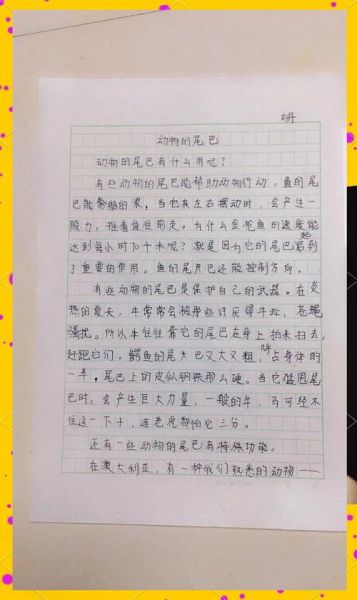 动物的尾巴
动物的尾巴有什么用呢？
有些动物的尾巴能帮助动物行动，鱼的尾
巴能帮助游泳，当它在左右摆动时，会产生一
股力，推着鱼往前走。为什么金枪鱼的速度能
达到每小时70千米呢？就是因为它的尾巴起到
了重要的作用。鱼的尾巴还能控制方向。
有些动物的尾巴是保护自己的武器。在炎
热的夏天，牛常常会被那些讨厌得牛虻、苍蝇
骚扰。所以牛往往靠它的尾巴在身上拍来扫去，
赶跑它们。鳄鱼的尾巴又大又粗，占身体的
一半。尾巴上的皮似钢铁那么硬。当它猛甩尾
巴时，会产生巨大力量，一般的牛、马可经不
住这一下子，连老虎都怕它三分。
还有一些动物的尾巴有特殊功能。
在澳大利亚，有一种我们熟悉的动物——